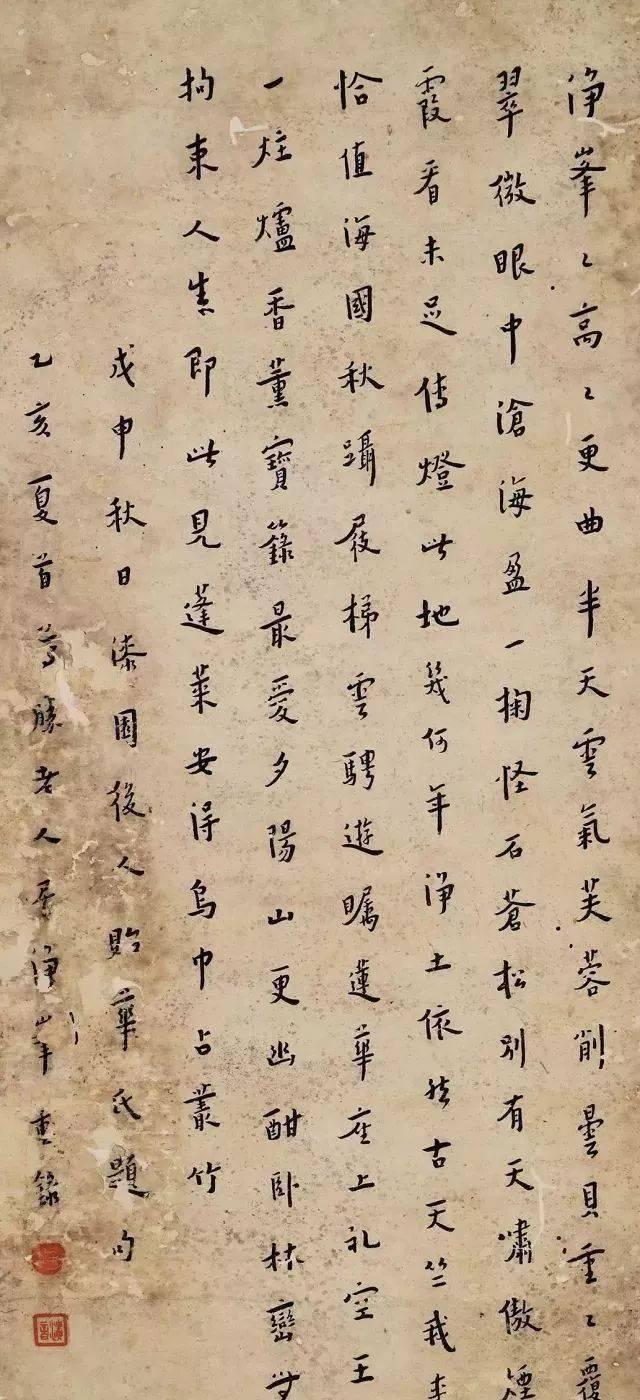 淨峯々高々更曲半天雲氣芙蓉削曇貝重々覆
翠微眼中滄海盈一掬怪石蒼松別有天嘯傲煙
霞看未足傳燈此地幾何年淨土依然古天竺我來
恰值海國秋躡屐梯雲騁遊矚蓮華座上礼空王
一炷爐香薰寶籙最愛夕陽山更幽酣臥林巒無
拘束人生即此見蓬萊安得烏巾占叢竹
戊申秋日漆園後人貽華氏題句
乙亥夏首尊勝老人居淨峯重錄
演音